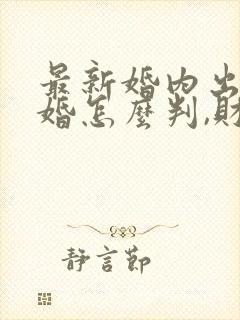 最新婚内出
婚怎麼判,財
静言節